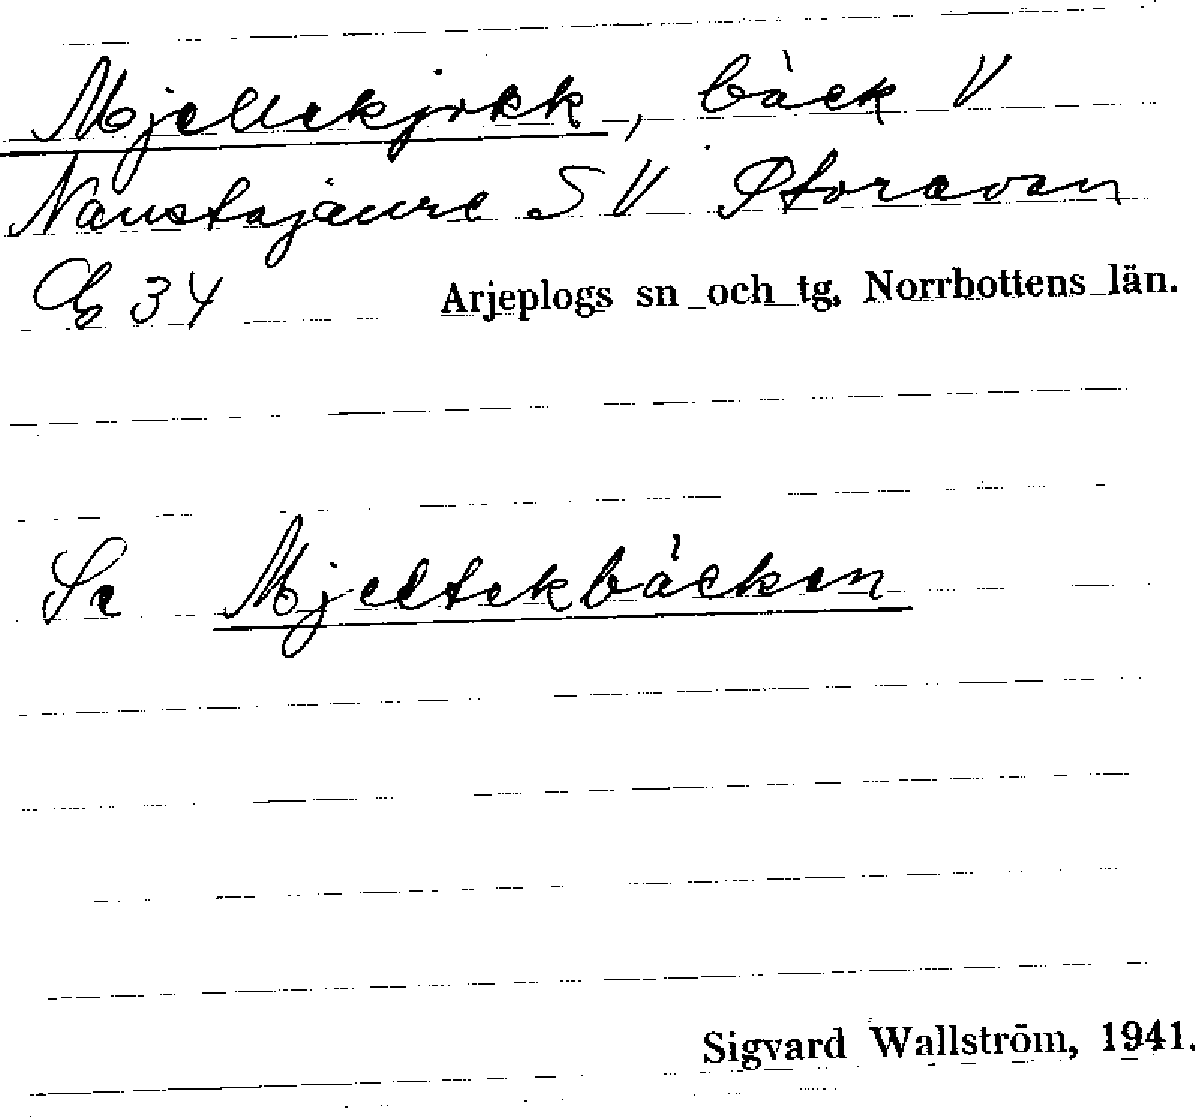 Mjeltekjokk, bäck V
Naustajaure SV Storavan
34 Arjeplogs sn och tg, Norrbottens län.
Se Mjeltekbäcken
Sigvard Wallström, 1941.